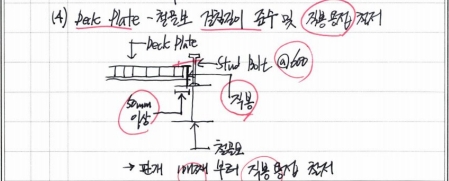 (4) Deck Plate - 철골보 걸침길이 준수 및 적용용접 철저
Deck Plate
Stud Bolt @600
50mm
이상
적용
철골보
→ 판개 1매째 부터 적용용접 철저